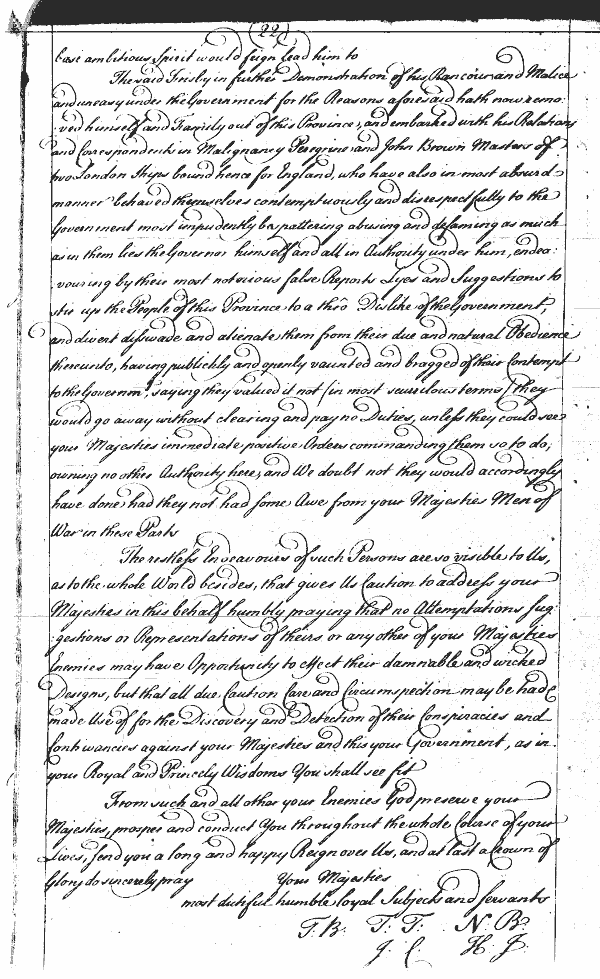 (22)
base ambitious Spirit would feign lead him to
The said Frisby in further Demonstration of his Rancour and Malice
and uneasy under the Government for the Reasons aforesaid hath now remo:
:ved himself and Family out of this Province, and embarked with his Relations
and Correspondents in Malignancy Peregrine and John Brown Masters of
two London Ships bound hence for England, who have also in most absurd
manner behaved themselves contemptuously and disrespectfully to the
Government most impudently bespattering abusing and defaming as much
as in them lies the Governor himself and all in Authority under him, endea:
:vouring by their most notorious false Reports Lyes and Suggestions to
stir up the People of this Province to a thrô Dislike of the Government,
and divert disswade and alienate them from their due and natural Obedience
thereunto, having publickly and openly vaunted and bragged of their Contempt
to the Governmt, saying they valued it not (in most scurrilous terms) they
would go away without clearing and pay no Duties, unless they could see
your Majesties immediate positive Orders commanding them so to do,
owning no other Authority here, and We doubt not they would accordingly
have done had they not had some Awe from your Majesties Men of
War in these Parts
The restless Endeavours of such Persons are so visible to Us,
as to the whole World besides, that gives Us Caution to address your
Majesties in this behalf humbly praying that no Attemptations Sug
:gestions or Representations of theirs or any other of your Majesties
Enemies may have Opportunity to effect their damnable and wicked
Designs, but that all due Caution Care and Circumspection may be had &
made Use of for the Discovery and Detection of their Conspiracies and
Contrivancies against your Majesties and this your Government, as in
your Royal and Princely Wisdoms You shall see fit
From such and all other your Enemies God preserve your
Majesties, prosper and conduct You throughout the whole Course of your
Lives, send you a long and happy Reign over Us, and at last a Crown of
Glory do sincerely pray Your Majesties
most dutiful humble loyal Subjects and servants
T. B. T: T: N. B:
J. C. H. J.